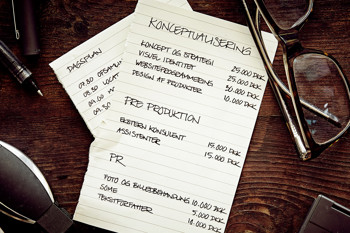 DAGSPLAN
KONCEPTUALISERING
KONCEPT OG STRATEGI 25.000 DKK
VISUEL IDENTITET 25.000 DKK
WEBSITEPROGRAMMERING 30.000 DKK
DESIGN AF PRODUKTER 10.000 DKK
PRE PRODUKTION
EKSTERN KONSULENT 15.000 DKK
ASSISTENTER 15.000 DKK
PR
FOTO OG BILLEDBEHANDLING 10.000 DKK
SOME 5.000 DKK
TEKSTFORFATTER 10.000 DKK
08.30
09.00